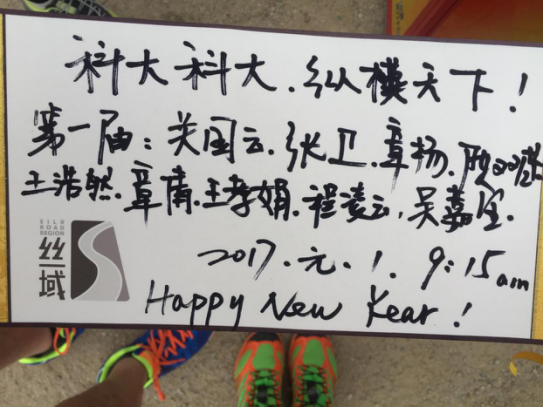 科大科大.纵横天下!
第一届:关国云.张卫.章扬.
王浩然.章倩.王孝娟.程凌云,吴嘉
SILK ROAD REGION
丝域
2017.元.1. 9:15am
Happy New Year!